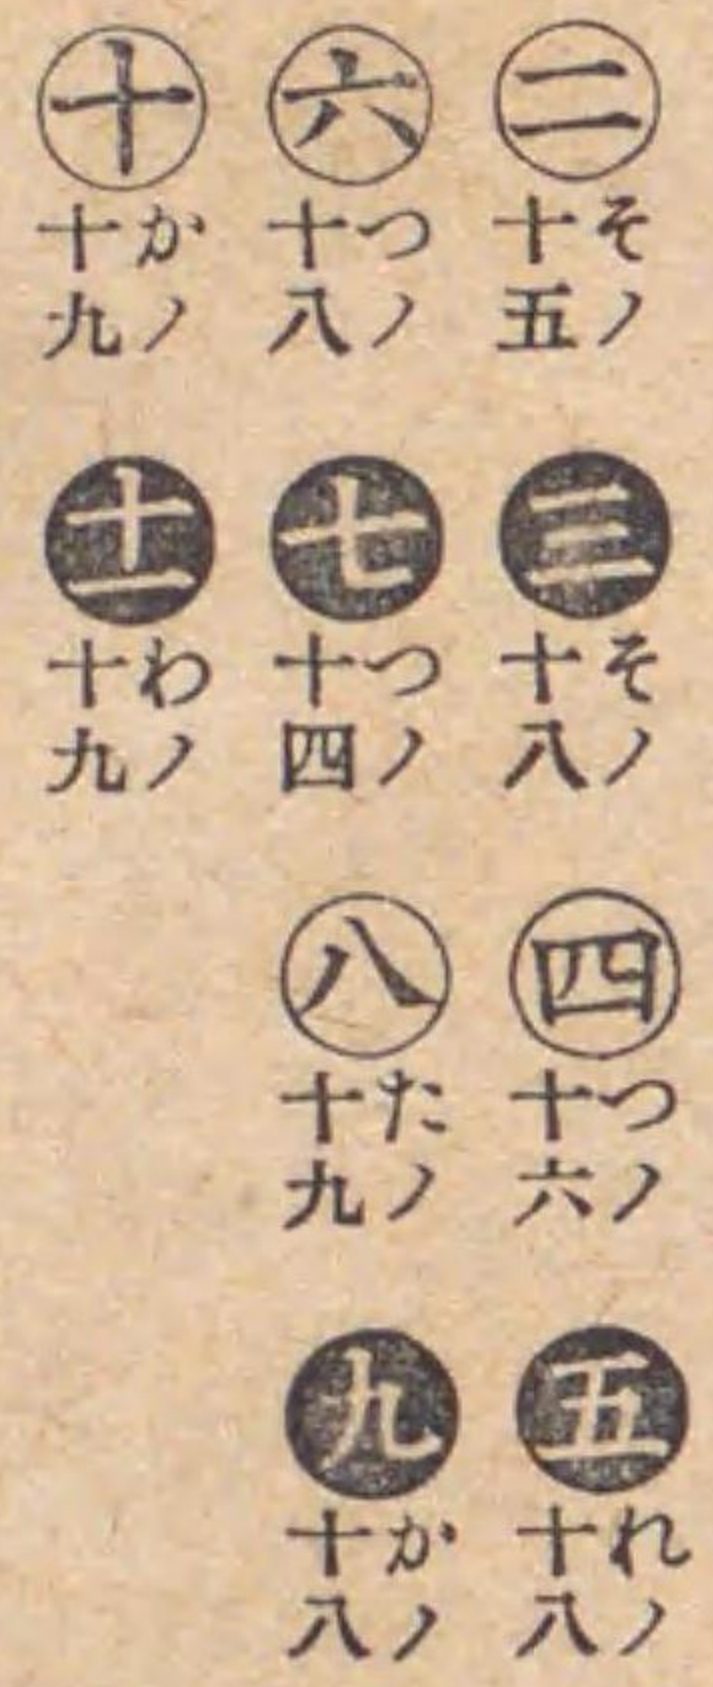 二
そノ
十五
三
そノ
十八
四
つノ
十六
五
れノ
十八
六
つノ
十八
七
つノ
十四
八
たノ
十九
九
かノ
十八
十
かノ
十九
十一
わノ
十九